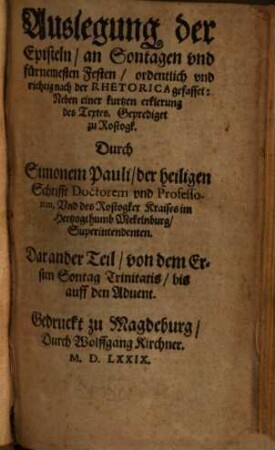 Auslegung der
Episteln / an Sontagen vnd
fürnemesten Festen / ordentlich vnd
richtig nach der RHETORICA gefasset:
Neben einer kurtzen erklerung
des Textes. Geprediget
zu Rostogk.
Durch
Simonem Pauli / der heiligen
Schrifft Doctorem vnd Professo-
rem, Vnd des Rostogker Kraises im
Hertzogthumb Mekelnburg /
Superintendenten.
Dar ander Teil / von dem Er-
sten Sontag Trinitatis / bis
auff den Aduent.
Gedruckt zu Magdeburg /
Durch Wolffgang Kirchner.
M. D. LXXIX.